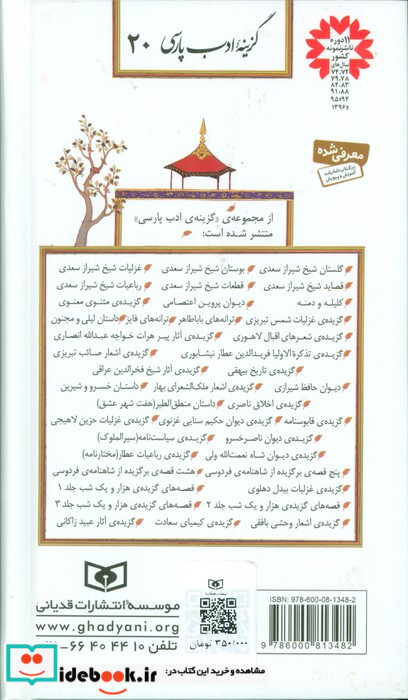 گزینهٔ ادب پارسی ۲۰
۱۱ دوره
ناشر نمونه
کشور
سال‌های
۷۴، ۷۲
۷۹، ۷۸
۸۴، ۸۳
۹۱، ۸۸
۹۵ و ۹۴
و ۱۳۹۶
معرفی شده
از مجموعه‌ی «گزینه‌ی ادب پارسی»
منتشر شده است:
گلستان شیخ شیراز سعدی بوستان شیخ شیراز سعدی غزلیات شیخ شیراز سعدی
قصاید شیخ شیراز سعدی قطعات شیخ شیراز سعدی رباعیات شیخ شیراز سعدی
کلیله و دمنه دیوان پروین اعتصامی گزیده‌ی مثنوی معنوی
گزیده‌ی غزلیات شمس تبریزی ترانه‌های باباطاهر ترانه‌های فایز داستان لیلی و مجنون
گزیده‌ی شعرهای اقبال لاهوری گزیده‌ی آثار پیر هرات خواجه عبدالله انصاری
گزیده‌ی تذکرة الاولیا فریدالدین عطار نیشابوری گزیده‌ی اشعار صائب تبریزی
گزیده‌ی تاریخ بیهقی گزیده‌ی آثار شیخ فخرالدین عراقی
دیوان حافظ شیرازی گزیده‌ی اشعار ملک‌الشعرای بهار داستان خسرو و شیرین
گزیده‌ی اخلاق ناصری داستان منطق‌الطیر (هفت شهر عشق)
گزیده‌ی قابوسنامه گزیده‌ی دیوان حکیم سنایی غزنوی گزیده‌ی غزلیات حزین لاهیجی
گزیده‌ی دیوان ناصرخسرو گزیده‌ی سیاست‌نامه (سیرالملوک)
گزیده‌ی دیوان شاه نعمت‌الله ولی گزیده‌ی رباعیات عطار (مختارنامه)
پنج قصه‌ی برگزیده از شاهنامه‌ی فردوسی هشت قصه‌ی برگزیده از شاهنامه‌ی فردوسی
گزیده‌ی غزلیات بیدل دهلوی قصه‌های گزیده‌ی هزار و یک شب جلد ۱
قصه‌های گزیده‌ی هزار و یک شب جلد ۲ قصه‌های گزیده‌ی هزار و یک شب جلد ۳
گزیده‌ی اشعار وحشی بافقی گزیده‌ی کیمیای سعادت گزیده‌ی آثار عبید زاکانی
مؤسسهٔ انتشارات قدیانی
www.ghadyani.org
تلفن ۱۰ ۴۴ ۴۰ ۶۶-
۳۵۰/۰۰۰ تومان
ISBN: 978-600-08-1348-2
9 786000 813482
مشاهده و خرید این کتاب در:
idebook.ir